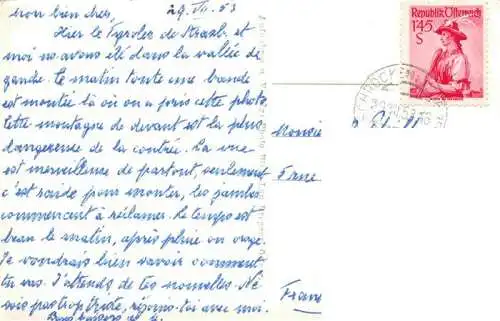 mon bien cher, 29. VII. 53
Hier le Tyroler de Strasb. et
moi nous avons été dans la vallée de
gande. Le matin toute une bande
est montée là où on a pris cette photo.
Cette montagne de devant est la plus
dangereuse de la contrée. La vue
est merveilleuse de partout, seulement
c'est raide pour monter, les jambes
commencent à réclamer. Le temps est
beau le matin, après pluie ou orage.
Je voudrais bien savoir comment
tu vas. J'attends de tes nouelles. Ne
sois pas trop triste, réjouis-toi avec moi.
Bons baisers
Republik Österreich
1·45
S
Monsie
France
France